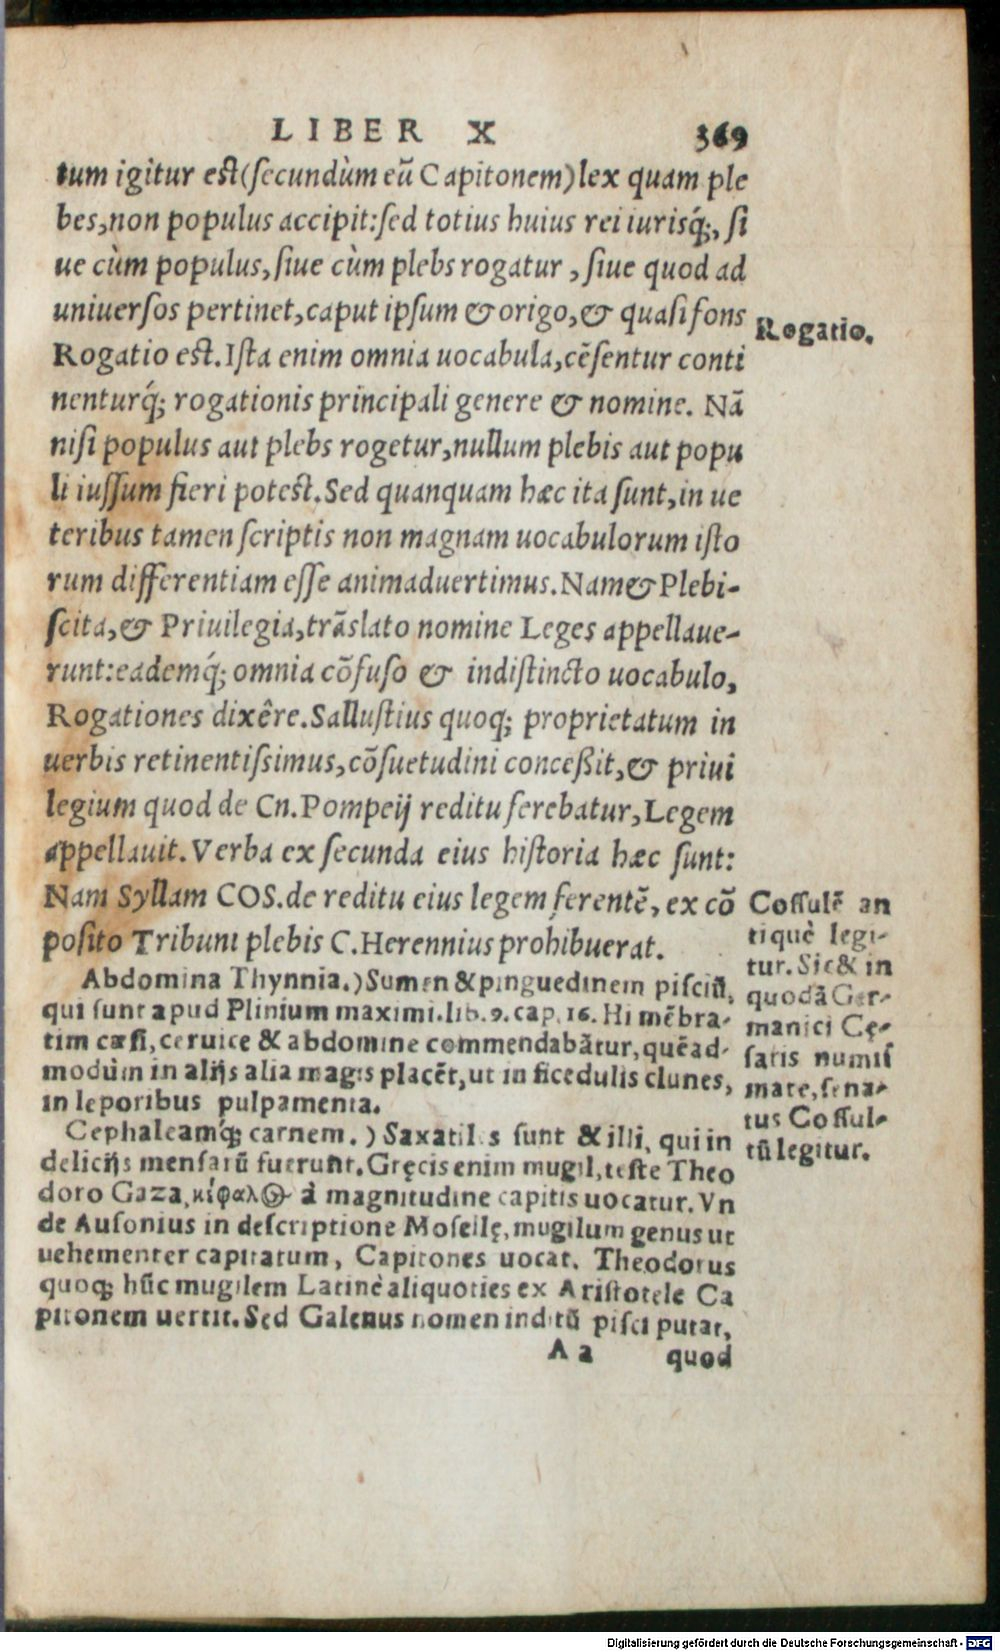 LIBER X 369
tum igitur est(secundùm eū Capitonem)lex quam ple
bes,non populus accipit:sed totius huius rei iurisq́;, si
ue cùm populus,siue cùm plebs rogatur ,siue quod ad
uniuersos pertinet,caput ipsum & origo,& quasi fons
Rogatio est.Ista enim omnia uocabula,cēsentur conti
nenturq́; rogationis principali genere & nomine. Nā
nisi populus aut plebs rogetur,nullum plebis aut popu
li iussum fieri potest.Sed quanquam hæc ita sunt,in ue
teribus tamen scriptis non magnam uocabulorum isto
rum differentiam esse animaduertimus.Nam& Plebi-
scita,& Priuilegia,trāslato nomine Leges appellaue-
runt:eademq́; omnia cōfuso & indistincto uocabulo,
Rogationes dixêre.Sallustius quoq; proprietatum in
uerbis retinentissimus,cōsuetudini conceßit,& priui
legium quod de Cn.Pompeij reditu ferebatur,Legem
appellauit.Verba ex secunda eius historia hæc sunt:
Nam Syllam COS.de reditu eius legem ferentē, ex cō
posito Tribuni plebis C.Herennius prohibuerat.
Abdomina Thynnia.)Sumen & pinguedinem pisciū,
qui sunt apud Plinium maximi.lib.9.cap.16. Hi mēbra-
tim cæsi,ceruice & abdomine commendabātur,quēad-
modùm in alijs alia magis placēt,ut in ficedulis clunes,
in leporibus pulpamenta.
Cephaleamq́; carnem.) Saxatiles sunt & illi, qui in
delicijs mensarū fuerunt.Gręcis enim mugil,teste Theo
doro Gaza,κίφαλος à magnitudine capitis uocatur.Vn
de Ausonius in descriptione Mosellę,mugilum genus ut
uehementer capitatum, Capitones uocat. Theodorus
quoq; hūc mugilem Latinè aliquoties ex Aristotele Ca
pitonem uertit.Sed Galenus nomen inditū pisci putat,
A a quod
Rogatio.
Cossulē an
tiquè legi-
tur.Sic & in
quodā Ger-
manici Cę-
saris numis
mate,sena-
tus Cossul-
tū legitur.
Digitalisierung gefördert durch die Deutsche Forschungsgemeinschaft - DFG